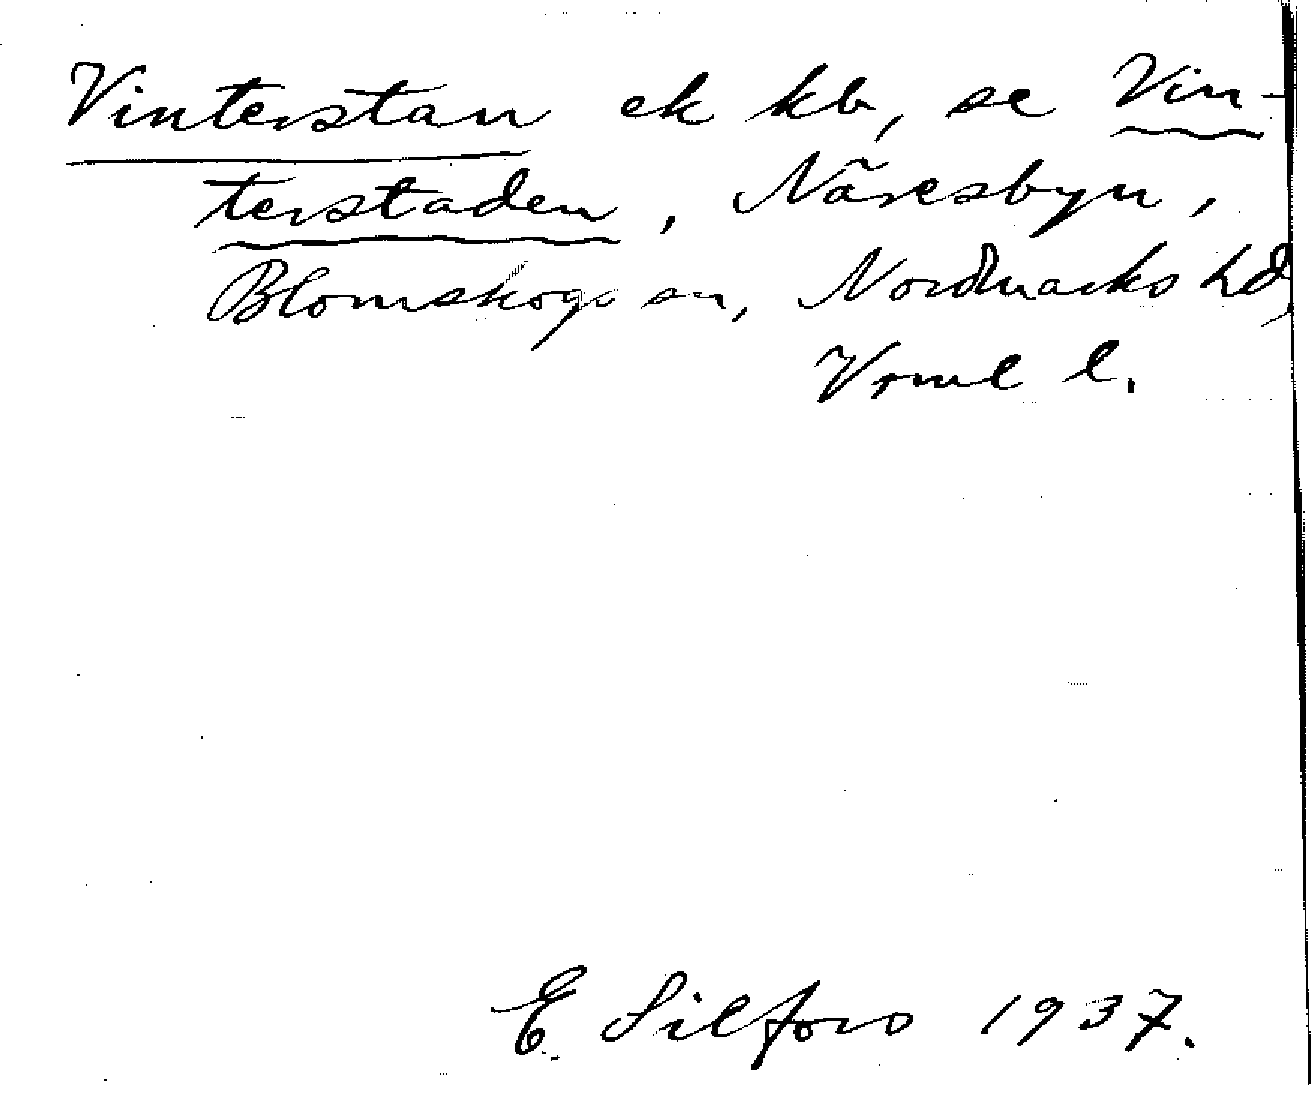 Vinterstan ek kb, se Vin-
terstaden, Näresbyn,
Blomskogs sn, Nordmarks hd,
Vrml l.
E Silfors 1937.